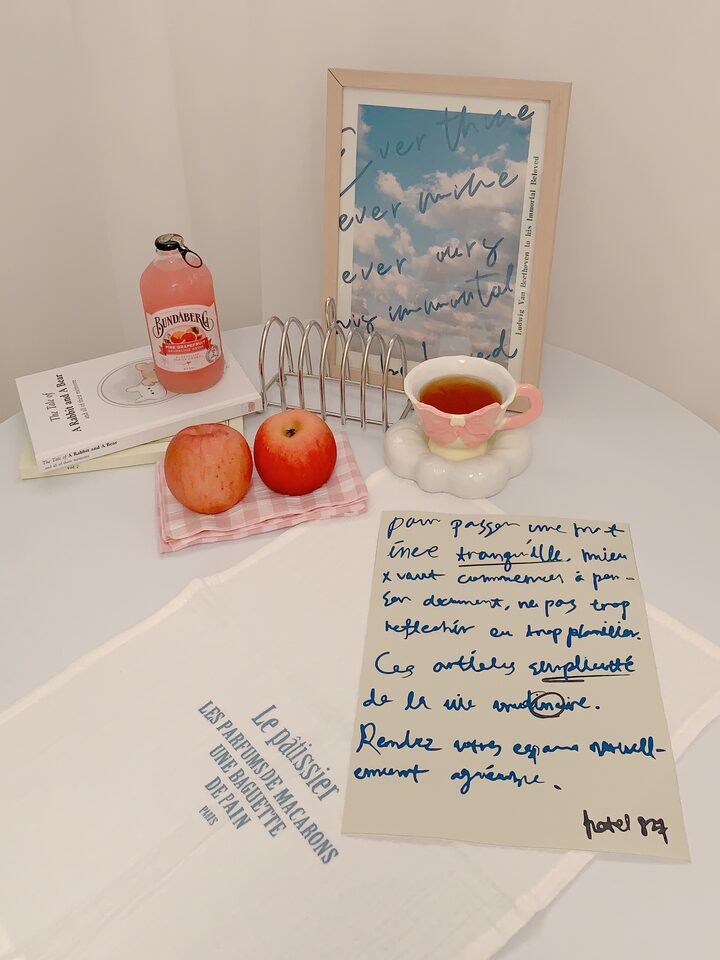 Ever thine
ever mine
ever ours
his immortal
Ludwig Van Beethoven to his Immortal Beloved
BUNDABERG
PINK GRAPEFRUIT
The Tale of
A Rabbit and A Bear
and all of their moments
The Tale of A Rabbit and A Bear
and all of their moments
pour passer une
tranquille, mieu
x vaut commencer à pen-
ser document, ne pas trop
reflechir ou trop planifier.
Ces articles simplicité
de la vie
Rendez votres espace
agréable.
hotel 827
Le pâtissier
LES PARFUMS DE MACARONS
UNE BAGUETTE
DE PAIN
PARIS